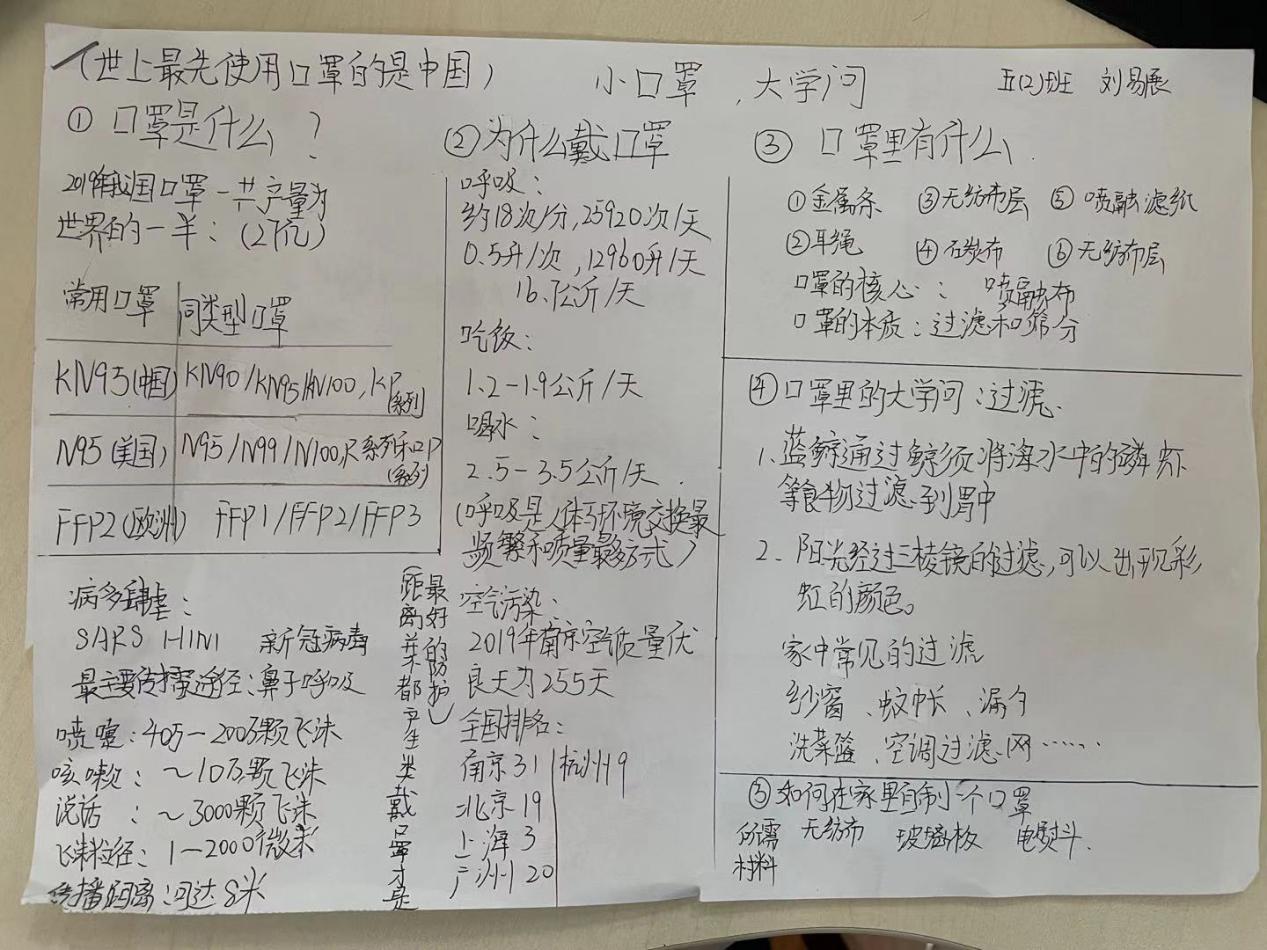 (世上最先使用口罩的是中国)
小口罩，大学问
五(2)班 刘易展
① 口罩是什么？
2019年我国口罩一共产量为
世界的一半：(2亿)
常用口罩 同类型口罩
KN95(中国) KN90/KN95/KN100,KP(系列)
N95(美国) N95/N99/N100,R系列和P(系列)
FFP2(欧洲) FFP1/FFP2/FFP3
病多肆虐：
SARS H1N1 新冠病毒
最主要传播途径：鼻子呼吸
喷嚏：4万—200万颗飞沫
咳嗽：~10万颗飞沫
说话：~3000颗飞沫
飞沫粒径：1—2000微米
传播距离：可达8米
(距离 都产生类 戴口罩才是
最好的防护)
②为什么戴口罩
呼吸：
约18次/分,25920次/天
0.5升/次,12960升/天
16.7公斤/天
吃饭：
1.2-1.9公斤/天
喝水：
2.5-3.5公斤/天.
(呼吸是人体与环境交换最
频繁和质量最多方式)
空气污染：
2019年南京空气质量优
良天为255天
全国排名：
南京31 杭州9
北京19
上海3
广州20
③ 口罩里有什么.
①金属条 ③无纺布层 ⑤喷融滤纸
②耳绳 ④石炭布 ⑥无纺布层
口罩的核心：喷融布
口罩的本质：过滤和筛分
④口罩里的大学问：过滤.
1.蓝鲸通过鲸须将海水中的磷虾
等食物过滤到胃中
2.阳光经过三棱镜的过滤,可以出现彩
虹的颜色。
家中常见的过滤
纱窗、蚊帐、漏勺
洗菜篮、空调过滤网……
⑤如何在家里自制一个口罩
所需材料 无纺布 玻璃板 电熨斗.